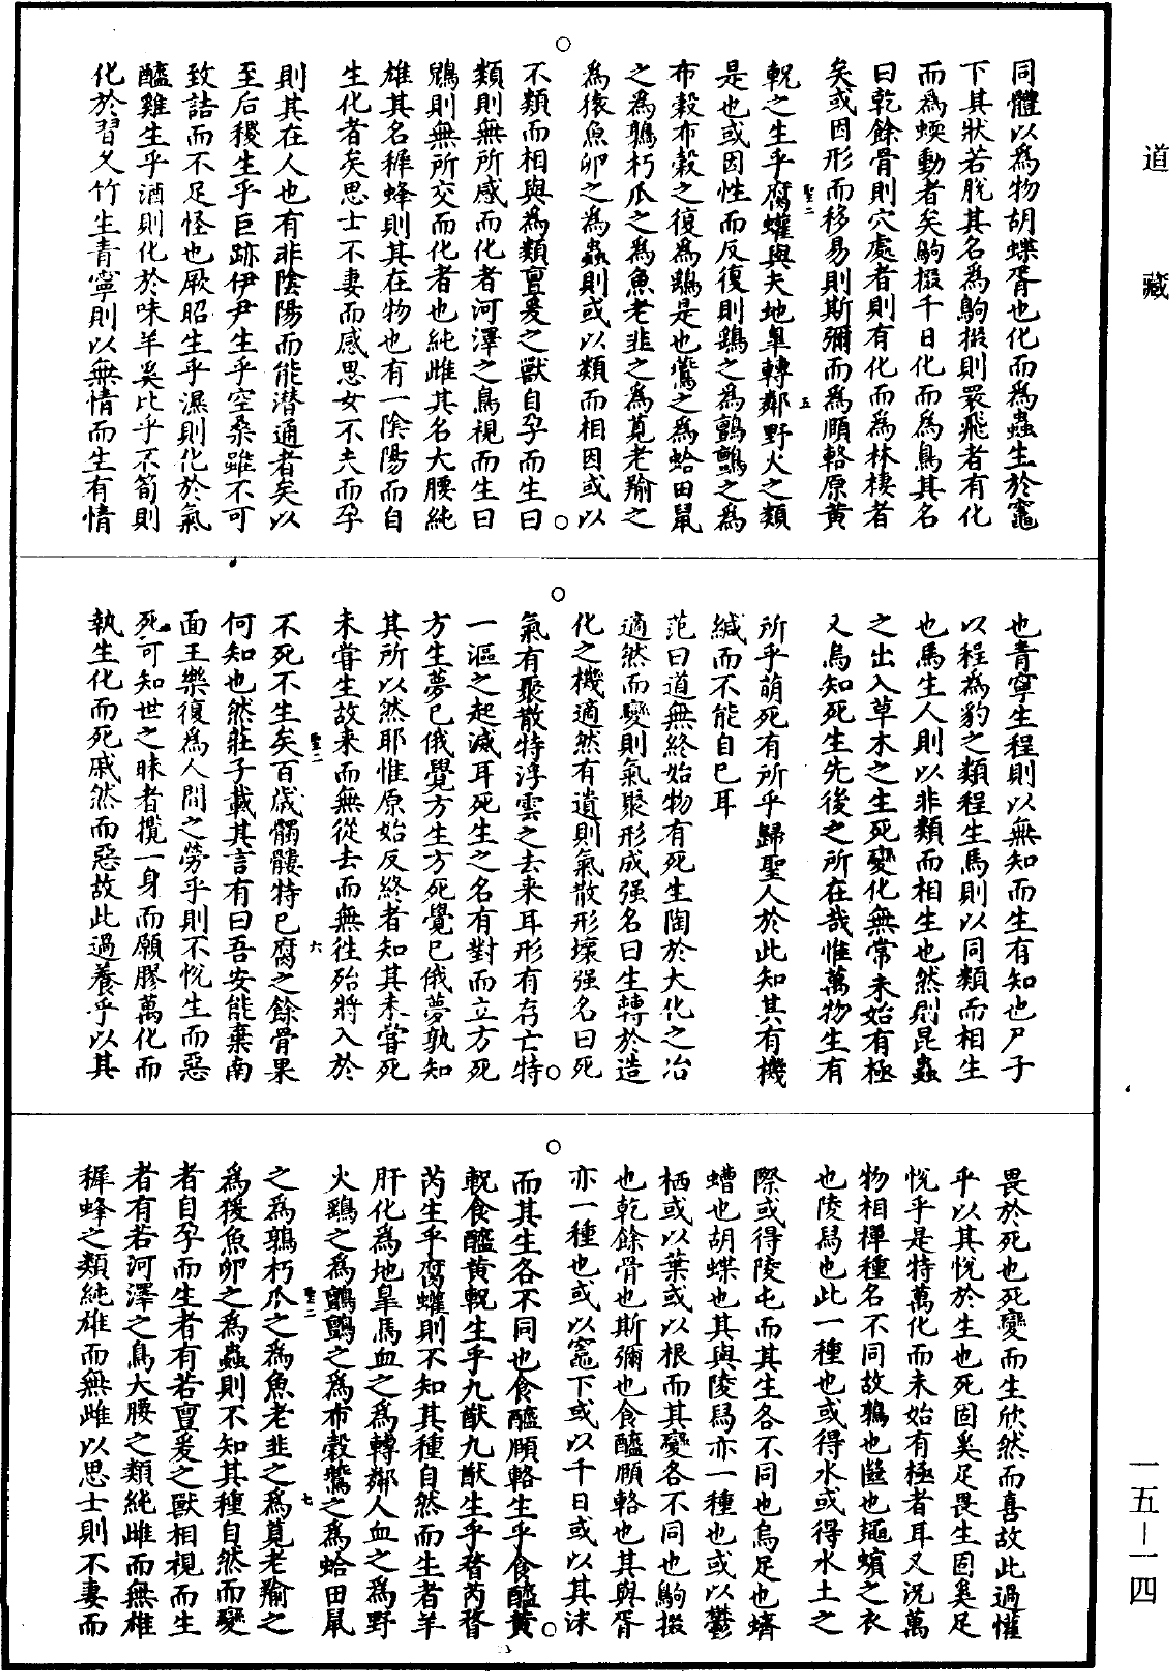 道藏
同體以為物胡蝶胥也化而為蟲生於竈
下其狀若脫其名為鴝掇則眾飛者有化
而為蝡動者矣鴝掇千日化而為鳥其名
曰乾餘骨則穴處者則有化而為林棲者
矣或因形而移易則斯彌而為頤輅原黃
軦之生乎腐蠸與夫地皐轉鄰野火之類
是也或因性而反復則鷂之為鸇鸇之為
布穀布穀之復為鷂是也鷰之為蛤田鼠
之為鶉朽瓜之為魚老韭之為莧老羭之
為猨魚卵之為蟲則或以類而相因或以
不類而相與為類亶爰之獸自孕而生曰
類則無所感而化者河澤之鳥視而生曰
鶂則無所交而化者也純雌其名大腰純
雄其名穉蜂則其在物也有一陰陽而自
生化者矣思士不妻而感思女不夫而孕
則其在人也有非陰陽而能潜通者矣以
至后稷生乎巨跡伊尹生乎空桑雖不可
致詰而不足怪也厥昭生乎濕則化於氣
醯雞生乎酒則化於味羊奚比乎不筍則
化於習久竹生青寧則以無情而生有情
聖二
五
也青寧生程則以無知而生有知也尸子
以程為豹之類程生馬則以同類而相生
也馬生人則以非類而相生也然則昆蟲
之出入草木之生死變化無常未始有極
又烏知死生先後之所在哉惟萬物生有
所乎萌死有所乎歸聖人於此知其有機
緘而不能自已耳
范曰道無終始物有死生陶於大化之冶
適然而變則氣聚形成强名曰生轉於造
化之機適然有遺則氣散形壞强名曰死
氣有聚散特浮雲之去来耳形有存亡特
一漚之起滅耳死生之名有對而立方死
方生夢已俄覺方生方死覺已俄夢孰知
其所以然耶惟原始反終者知其未嘗死
未嘗生故来而無從去而無往殆將入於
不死不生矣百歲髑髏特已腐之餘骨果
何知也然莊子載其言有曰吾安能棄南
面王樂復為人間之勞乎則不悅生而惡
死可知世之昧者攬一身而願膠萬化而
執生化而死戚然而惡故此過養乎以其
聖二
六
畏於死也死變而生欣然而喜故此過懽
乎以其悅於生也死固奚足畏生固奚足
悅乎是特萬化而未始有極者耳又況萬
物相禪種名不同故鶉也㡭也蠅蠙之衣
也陵舄也此一種也或得水或得水土之
際或得陵屯而其生各不同也烏足也蠐
螬也胡蝶也其與陵舄亦一種也或以鬱
栖或以葉或以根而其變各不同也鴝掇
也乾餘骨也斯彌也食醯頤輅也其與胥
亦一種也或以竈下或以千日或以其沫
而其生各不同也食醯頤輅生乎食醯黃
軦食醯黃軦生乎九猷九猷生乎瞀芮瞀
芮生乎腐蠸則不知其種自然而生者羊
肝化為地皐馬血之為轉鄰人血之為野
火鷂之為鸇鸇之為布穀鷰之為蛤田鼠
之為鶉朽瓜之為魚老韭之為莧老羭之
為猨魚卵之為蟲則不知其種自然而變
者自孕而生者有若亶爰之獸相視而生
者有若河澤之鳥大腰之類純雌而無雄
穉蜂之類純雄而無雌以思士則不妻而
聖二
七
一五—一四